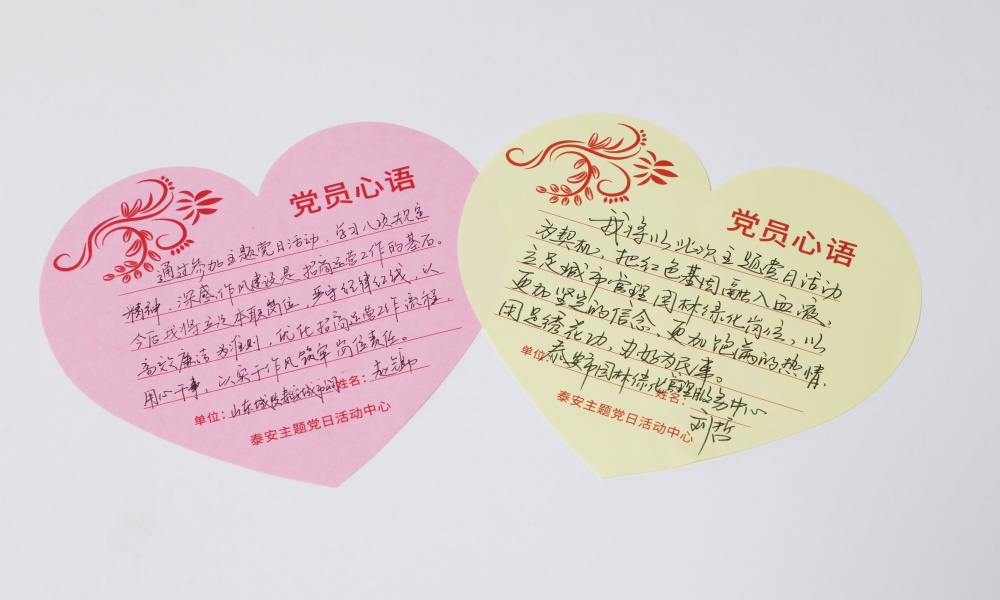 党员心语
通过参加主题党日活动，学习八项规定
精神，深感作风建设是招商运营工作的基石。
今后我将立足本职岗位，严守纪律红线，以
高效廉洁为准则，优化招商运营工作流程，
用心干事，以实干作风筑牢岗位责任。
单位：山东城 姓名：
泰安主题党日活动中心
党员心语
我将以此次主题党日活动
为契机，把红色基因融入血液。
立足城市管理园林绿化岗位，以
更加坚定的信念、更加饱满的热情，
用足绣花功，办好为民事。
单位 泰安市园林绿化管理服务中心
姓名： 刘哲
泰安主题党日活动中心